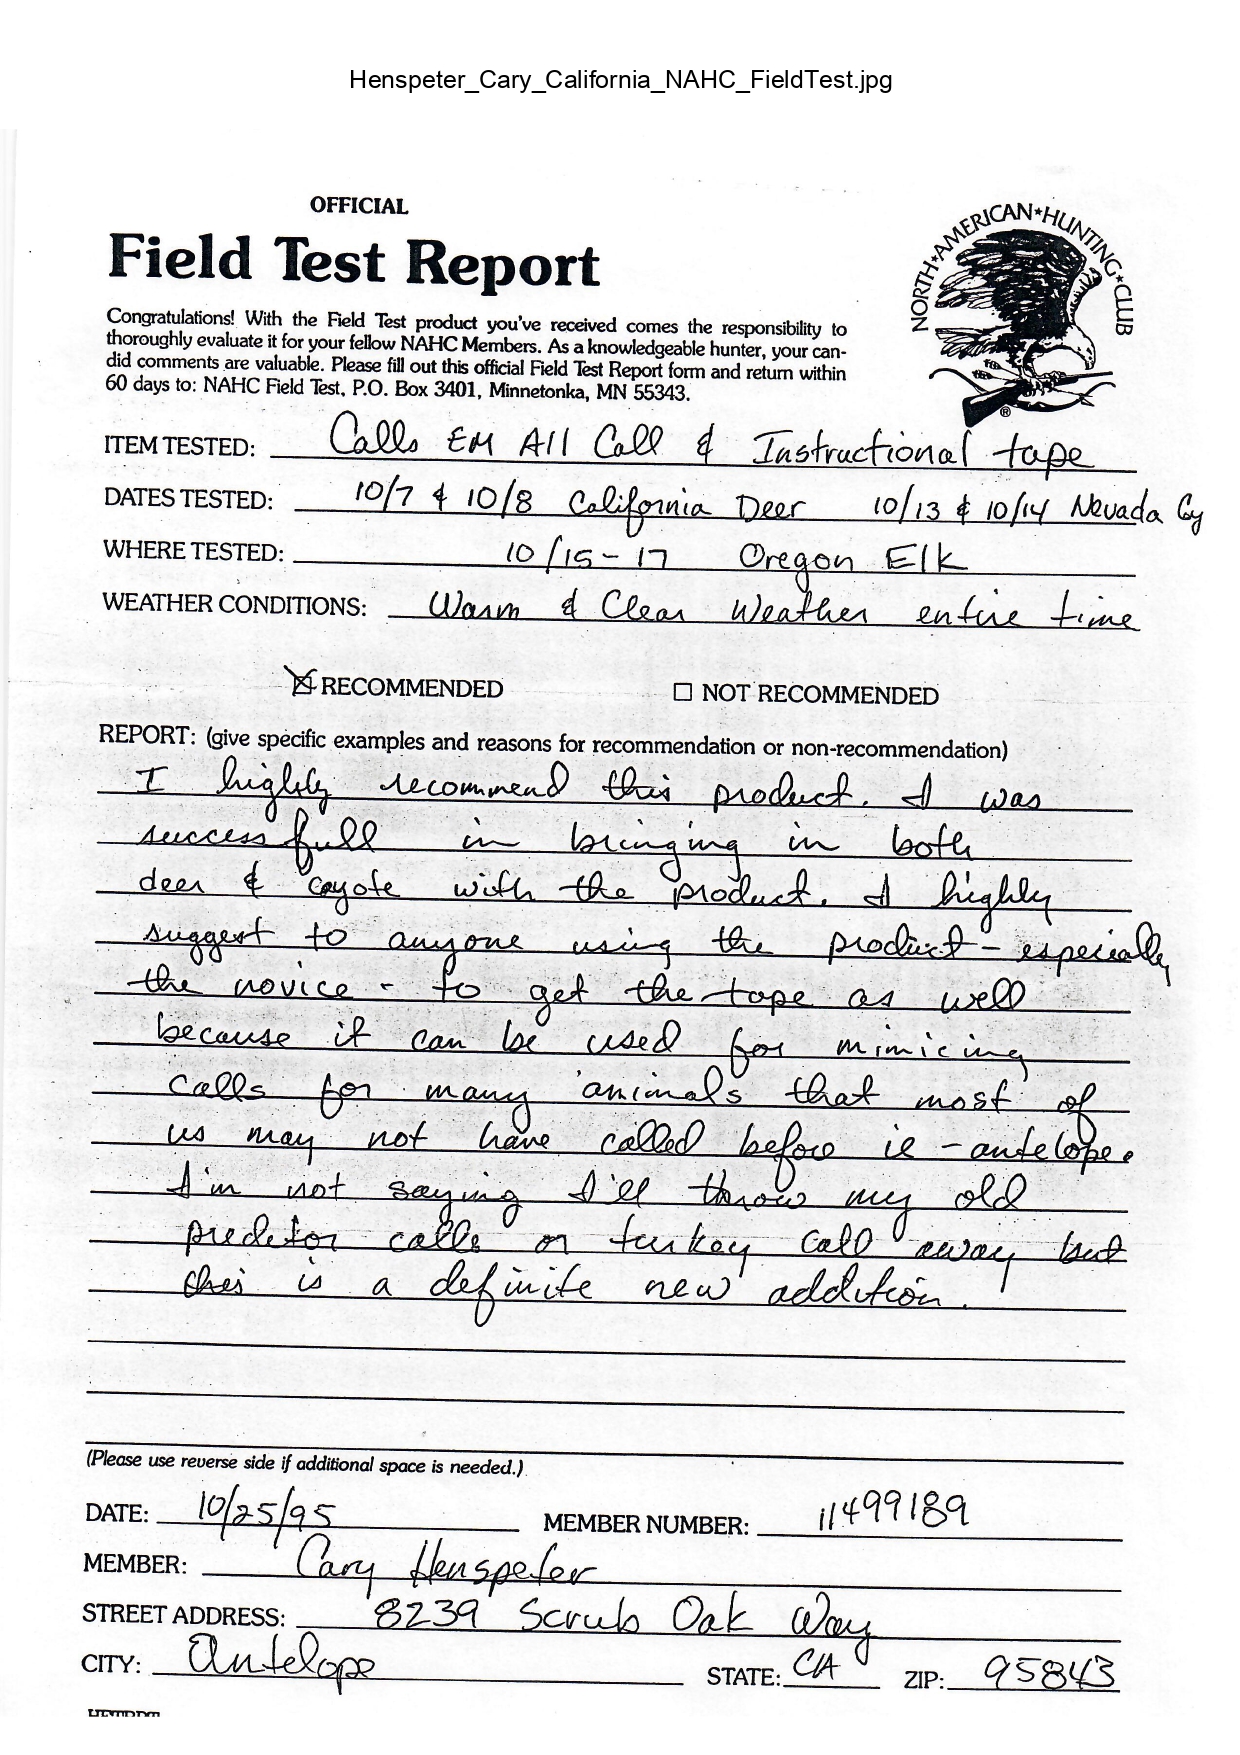 Henspeter_Cary_California_NAHC_FieldTest.jpg
OFFICIAL
Field Test Report
NORTH★AMERICAN★HUNTING★CLUB
®
Congratulations! With the Field Test product you've received comes the responsibility to
thoroughly evaluate it for your fellow NAHC Members. As a knowledgeable hunter, your can-
did comments are valuable. Please fill out this official Field Test Report form and return within
60 days to: NAHC Field Test, P.O. Box 3401, Minnetonka, MN 55343.
ITEM TESTED: Calls EM All Call & Instructional tape
DATES TESTED: 10/7 & 10/8 California Deer 10/13 & 10/14 Nevada Cy
WHERE TESTED: 10/15-17 Oregon Elk
WEATHER CONDITIONS: Warm & Clear Weather entire time
☒ RECOMMENDED ☐ NOT RECOMMENDED
REPORT: (give specific examples and reasons for recommendation or non-recommendation)
I highly recommend this product. I was
successfull in bringing in both
deer & coyote with the product. I highly
suggest to anyone using the product - especially
the novice - to get the tape as well
because it can be used for mimicing
calls for many animals that most of
us may not have called before ie - antelope.
I'm not saying I'll throw my old
predetor calls or turkey call away but
this is a definite new addition.
(Please use reverse side if additional space is needed.)
DATE: 10/25/95 MEMBER NUMBER: 11499189
MEMBER: Cary Henspeter
STREET ADDRESS: 8239 Scrub Oak Way
CITY: Antelope STATE: CA ZIP: 95843